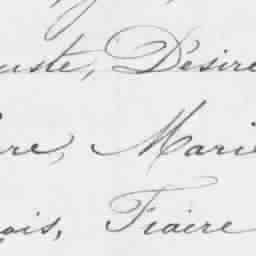 uste, Désiré
re, Marie
çois, Fiacre